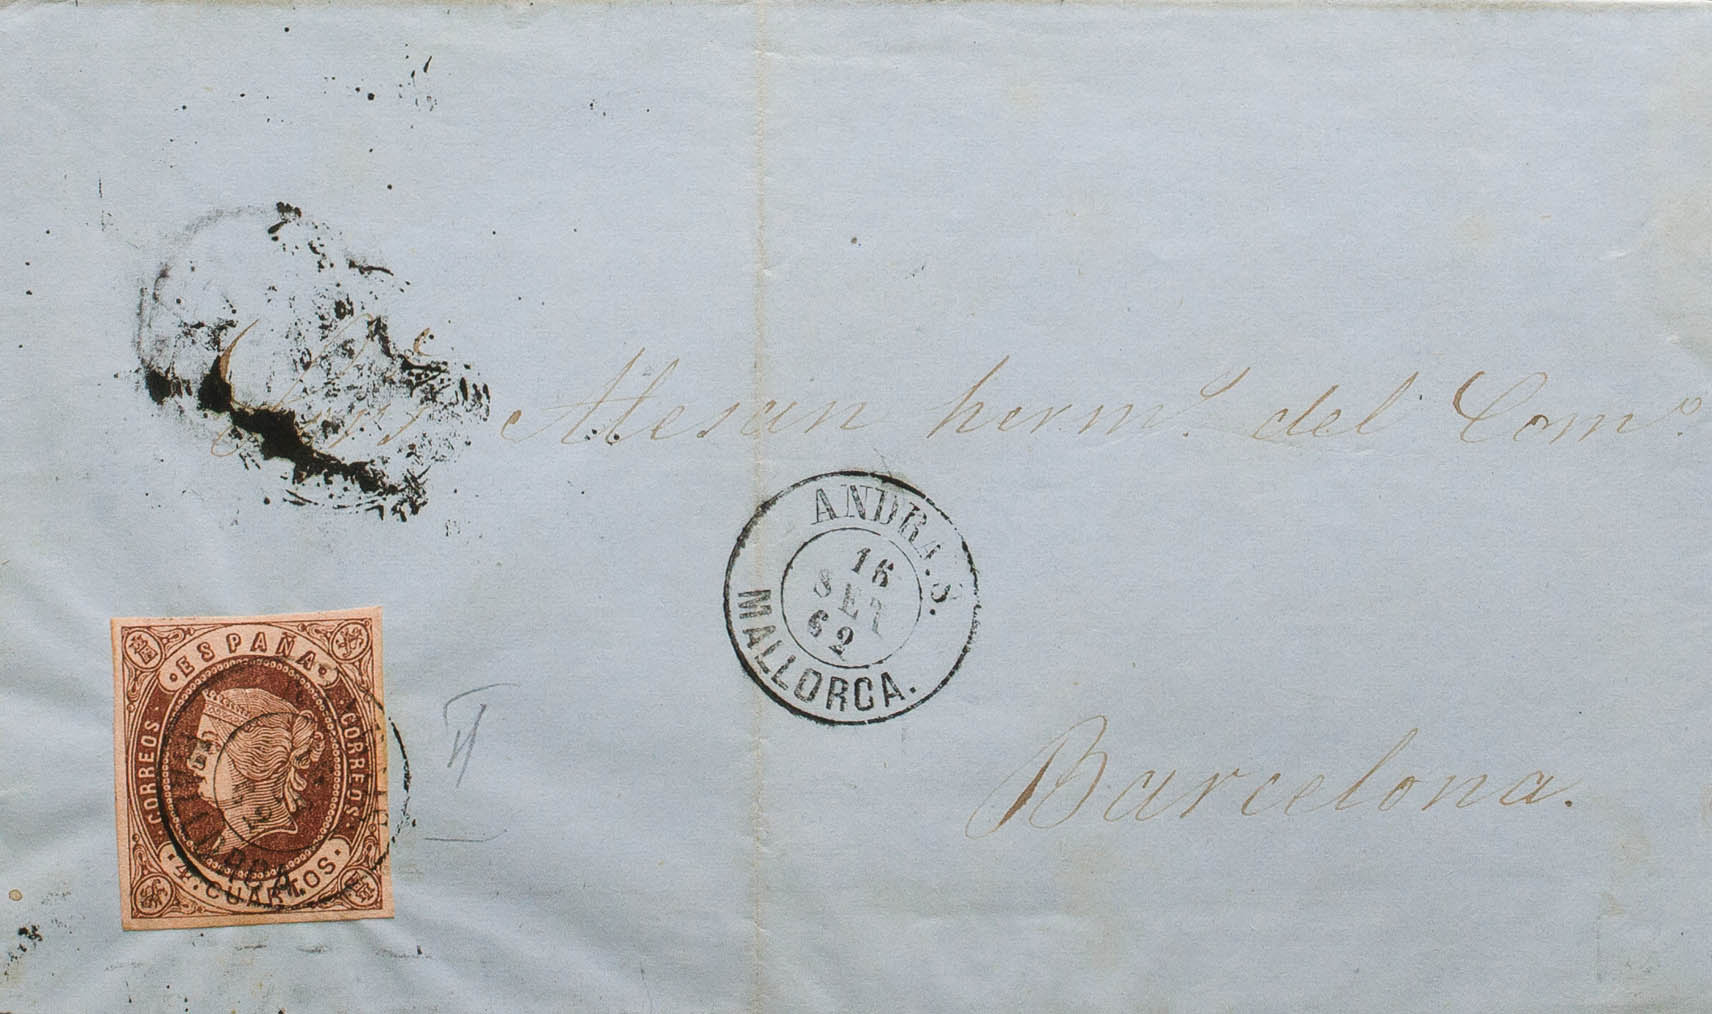 Alesan herm.º del Com.º
ANDRA.S.
16
SET
62
MALLORCA.
ESPAÑA
CORREOS
CORREOS
4. CUARTOS
Barcelona.